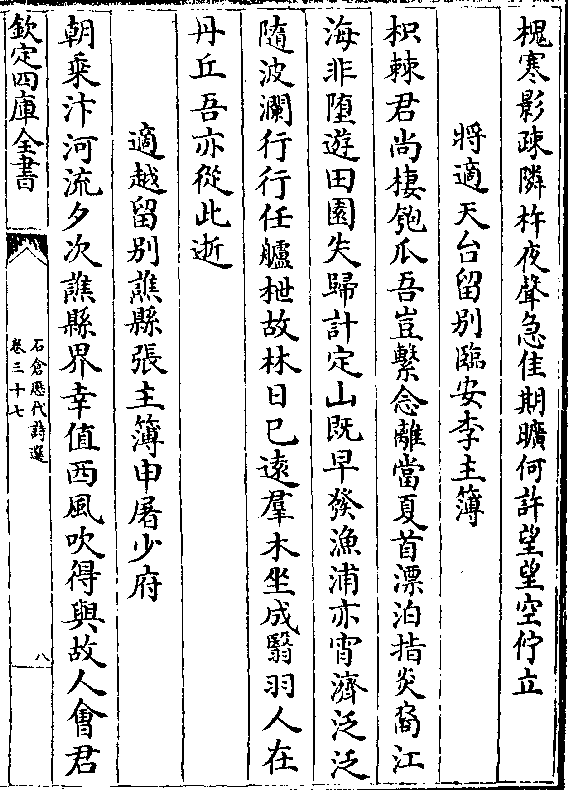 槐寒影疎隣杵夜聲急佳期曠何許望望空佇立
將適天台留别臨安李主簿
枳棘君尚棲匏瓜吾豈繫念離當夏首漂泊指炎裔江
海非墮遊田園失歸計定山既早發漁浦亦宵濟泛泛
隨波瀾行行任艫枻故林日已遠羣木坐成翳羽人在
丹丘吾亦從此逝
適越留别譙縣張主簿申屠少府
朝乗汴河流夕次譙縣界幸值西風吹得與故人會君
欽定四庫全書
石倉歷代詩選
卷三十七
八